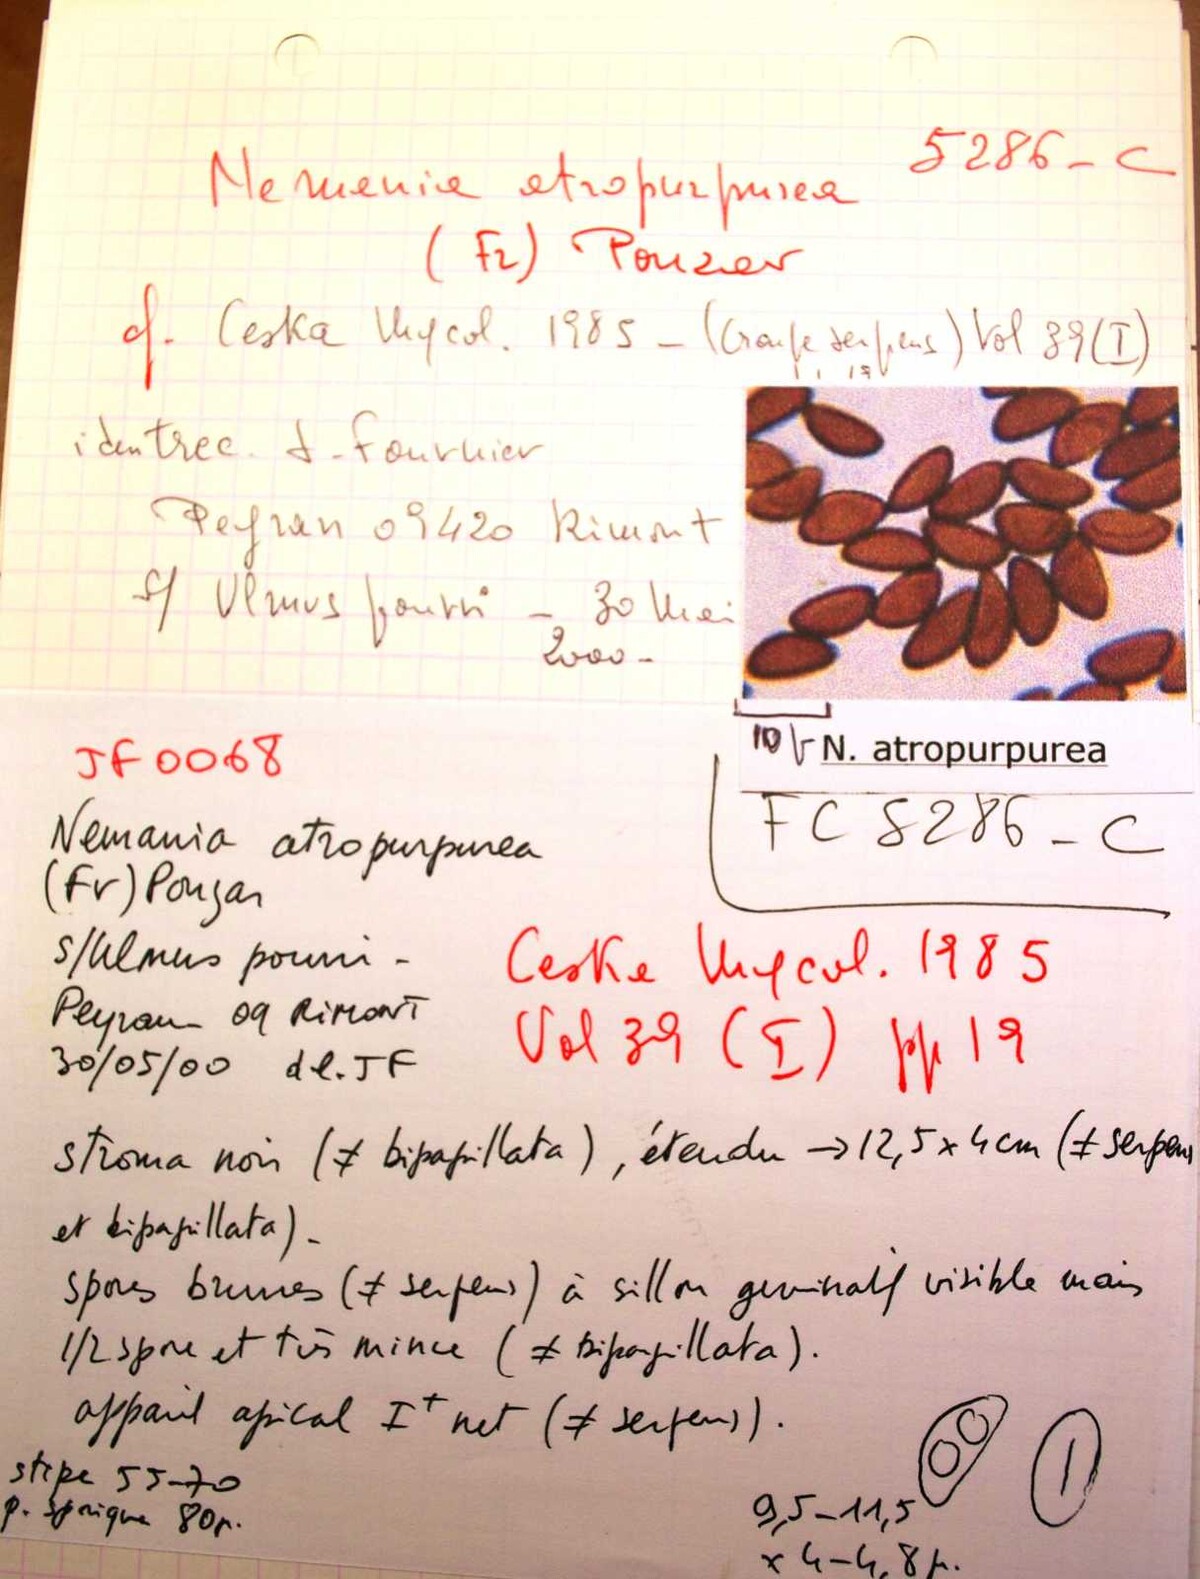 5286-C
Nemania atropurpurea
(Fr) Pouzar
cf. Ceska Mycol. 1985 - (Groupe serpens) Vol 39 (I)
ident rec. J. Fournier
Peyrau 09420 Rimont
s/ Ulmus pourri - 30 Mai
2000-
10µ N. atropurpurea
FC 5286-C
JF0068
Nemania atropurpurea
(Fr) Pouzar
s/Ulmus pourri -
Peyrau 09 RIMONT
30/05/00 dl. JF
Ceska Mycol. 1985
Vol 39 (I) pp 19
stroma noir (≠ bipapillata), étendu → 12,5 x 4 cm (≠ serpens
et bipapillata).
spores brunes (≠ serpens) à sillon germinatif visible mais
1/2 spore et très mince (≠ bipapillata).
appareil apical I⁺ net (≠ serpens).
stipe 55-70
p. sporique 80µ.
9,5-11,5
x 4-4,8µ.